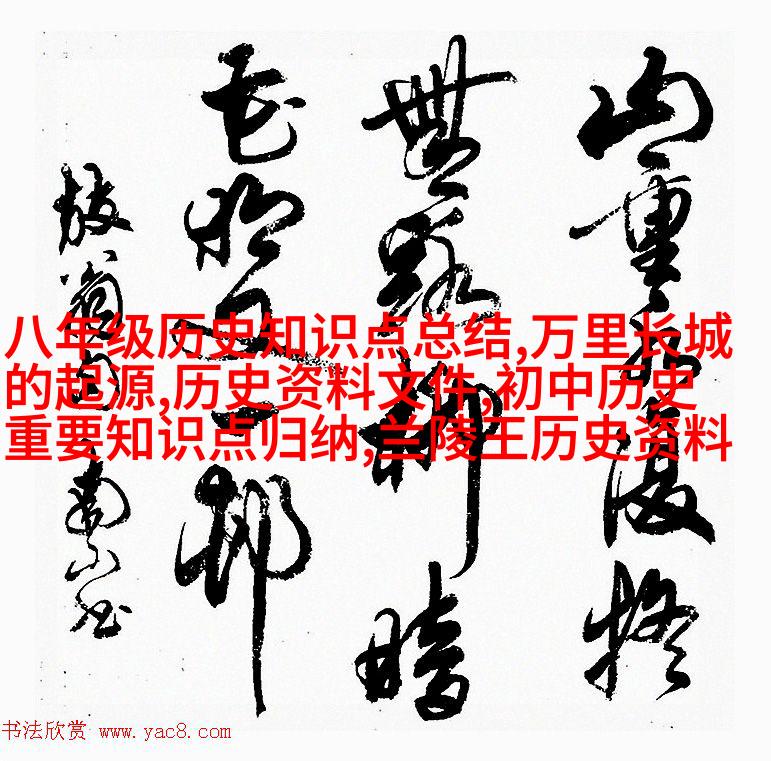 山重水復疑
無路柳暗
花明又一邨
放翁句
八年级历史知识点总结,万里长城
的起源,历史资料文件,初中历史
重要知识点归纳,兰陵王历史资料
书法欣赏 www.yac8.com